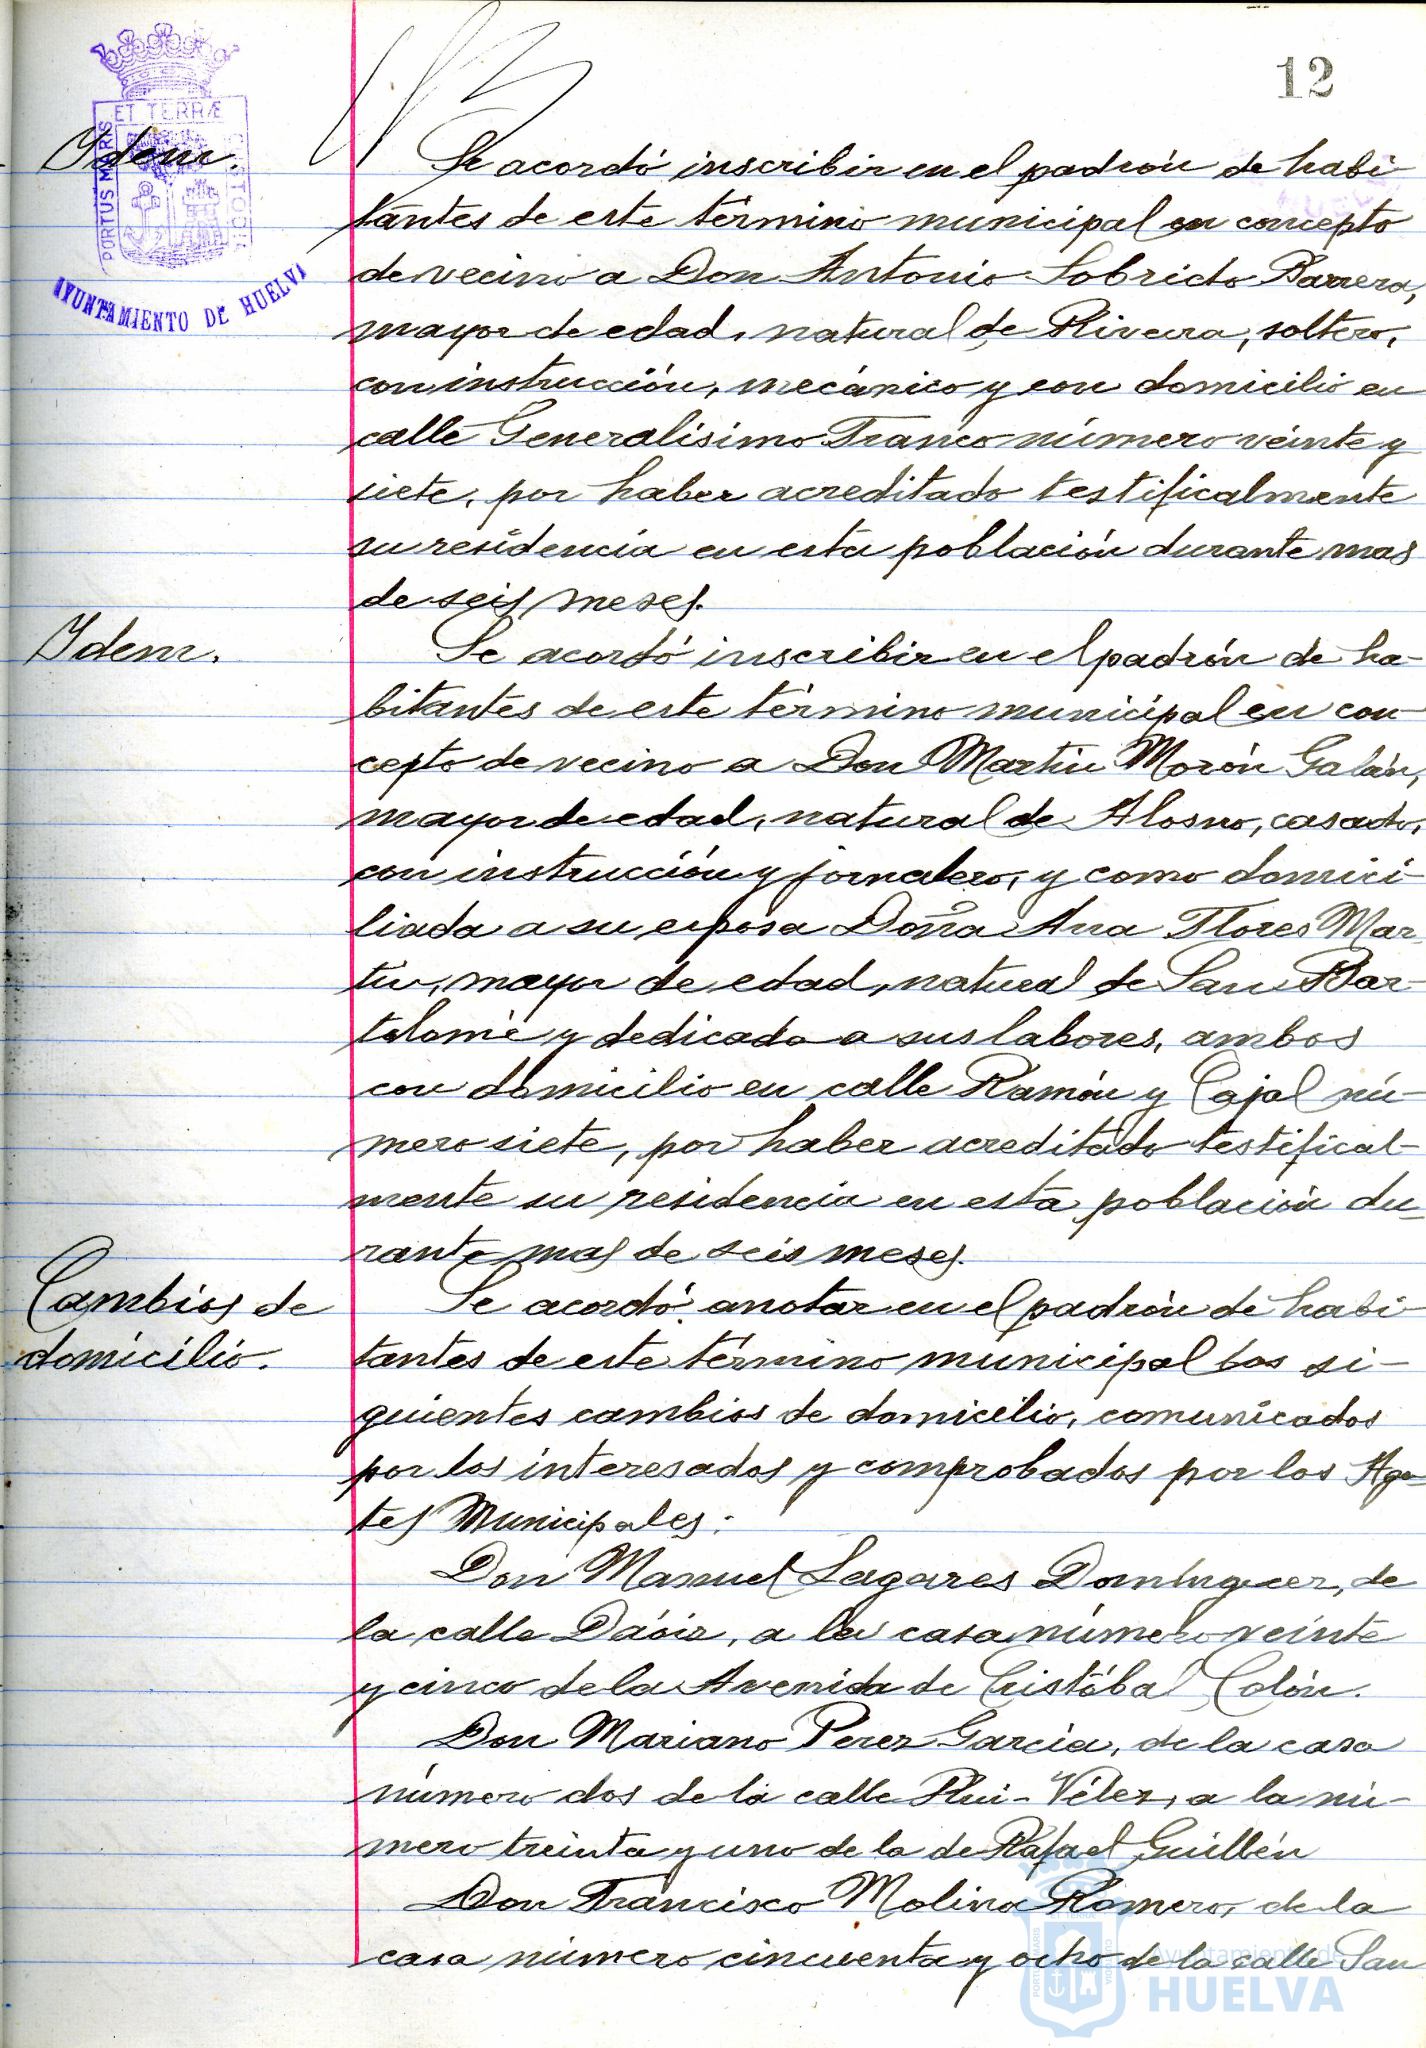 12
ET TERRÆ
PORTUS MARIS
CUSTODIA
AYUNTAMIENTO DE HUELVA
Idem.
Se acordó inscribir en el padrón de habi-
tantes de este término municipal en concepto
de vecino a Don Antonio Sobrido Barrera,
mayor de edad, natural de Riveira, soltero,
con instrucción, mecánico y con domicilio en
calle Generalisimo Franco número veinte y
siete, por haber acreditado testificalmente
su residencia en esta población durante mas
de seis meses.
Idem.
Se acordó inscribir en el padrón de ha-
bitantes de este término municipal en con-
cepto de vecino a Don Martin Morón Galán,
mayor de edad, natural de Alosno, casado,
con instrucción y jornalero, y como domici-
liada a su esposa Doña Ana Flores Mar-
tin, mayor de edad, natural de San Bar-
tolomé y dedicada a sus labores, ambos
con domicilio en calle Ramón y Cajal nú-
mero siete, por haber acreditado testifical-
mente su residencia en esta población du-
rante mas de seis meses.
Cambios de
domicilio.
Se acordó anotar en el padrón de habi-
tantes de este término municipal los si-
guientes cambios de domicilio, comunicados
por los interesados y comprobados por los Agen-
tes Municipales:
Don Manuel Lagares Dominguez, de
la calle Dáoiz, a la casa número veinte
y cinco de la Avenida de Cristóbal Colón.
Don Mariano Perez Garcia, de la casa
número dos de la calle Rui-Vélez, a la nú-
mero treinta y uno de la de Rafael Guillén
Don Francisco Molina Romero, de la
casa número cincuenta y ocho de la calle San
Ayuntamiento de
HUELVA